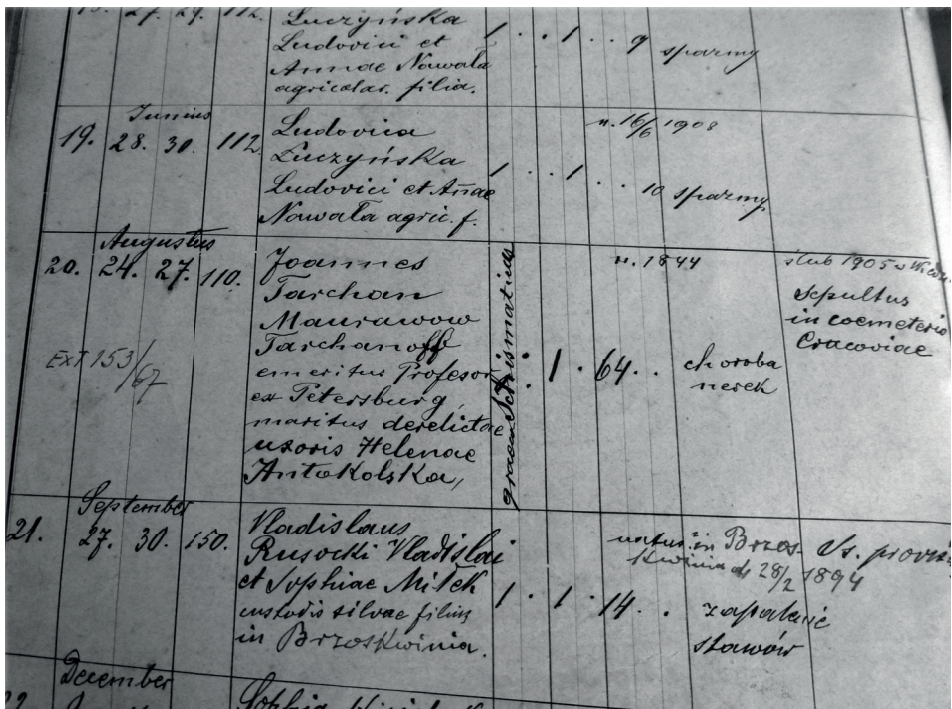 27. 29. 112.
Łuczyńska
Ludovici et
Annae Nowała
agricolar. filia.
1 . . 1 . . 9 spazmy
Junius
19. 28. 30. 112
Ludovica
Łuczyńska
Ludovici et Anae
Nowała agric. f.
n. 16/6 1908
1 . . 1 . . . 10 spazmy
Augustus
20. 24. 27. 110.
Ext 153/67
Joannes
Tarchan
Maurawow
Tarchanoff
emeritus Profesor
ex Petersburg,
maritus derelictae
uxoris Helenae
Antokolska,
graeco Schismaticus
n. 1844
. 1 . 64 . .
choroba
nerek
ślub 1905 w
sepultus
in coemeterio
Cracoviae
September
21. 27. 30. 150.
Vladislaus
Rusocki Vladislai
et Sophiae Miłek
custodis silvae filius
in Brzoskwinia.
natus in Brzos-
kwinia d. 28/2 1894
1 . . 1 . 14 . .
zapalenie
stawów
Ss. provis.
December
22
Sophia